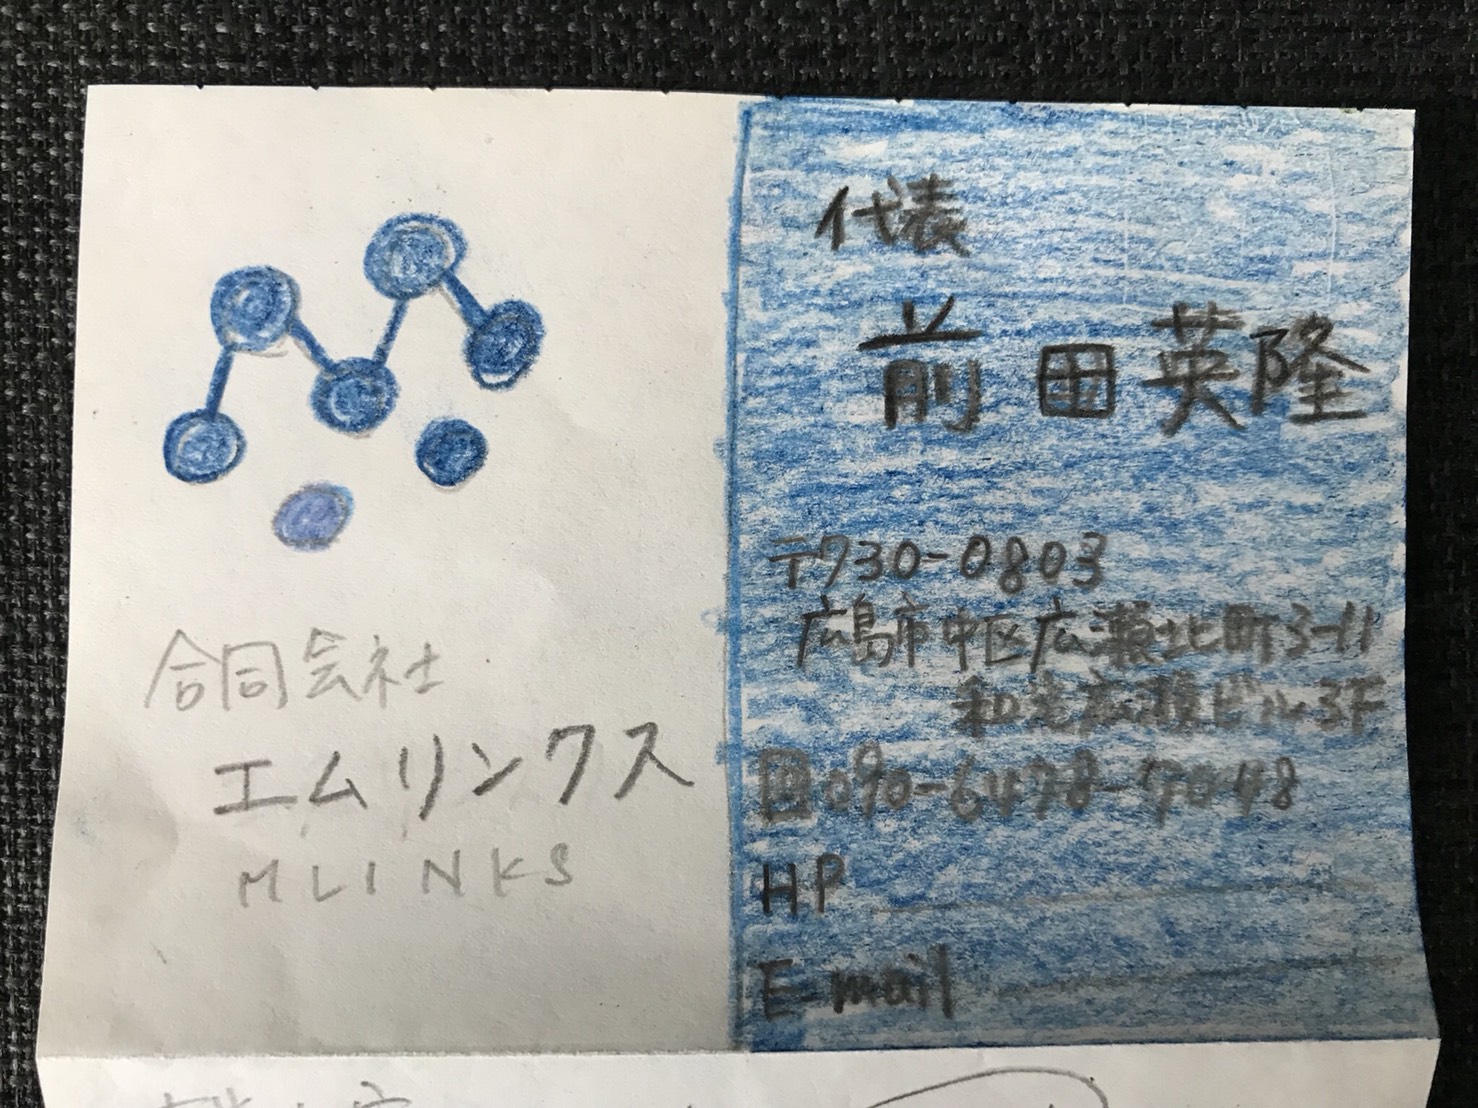 合同会社
エムリンクス
MLINKS
代表
前田英隆
〒730-0803
広島市中区広瀬北町3-11
広瀬ビル3F
090-6478-7048
HP
E-mail